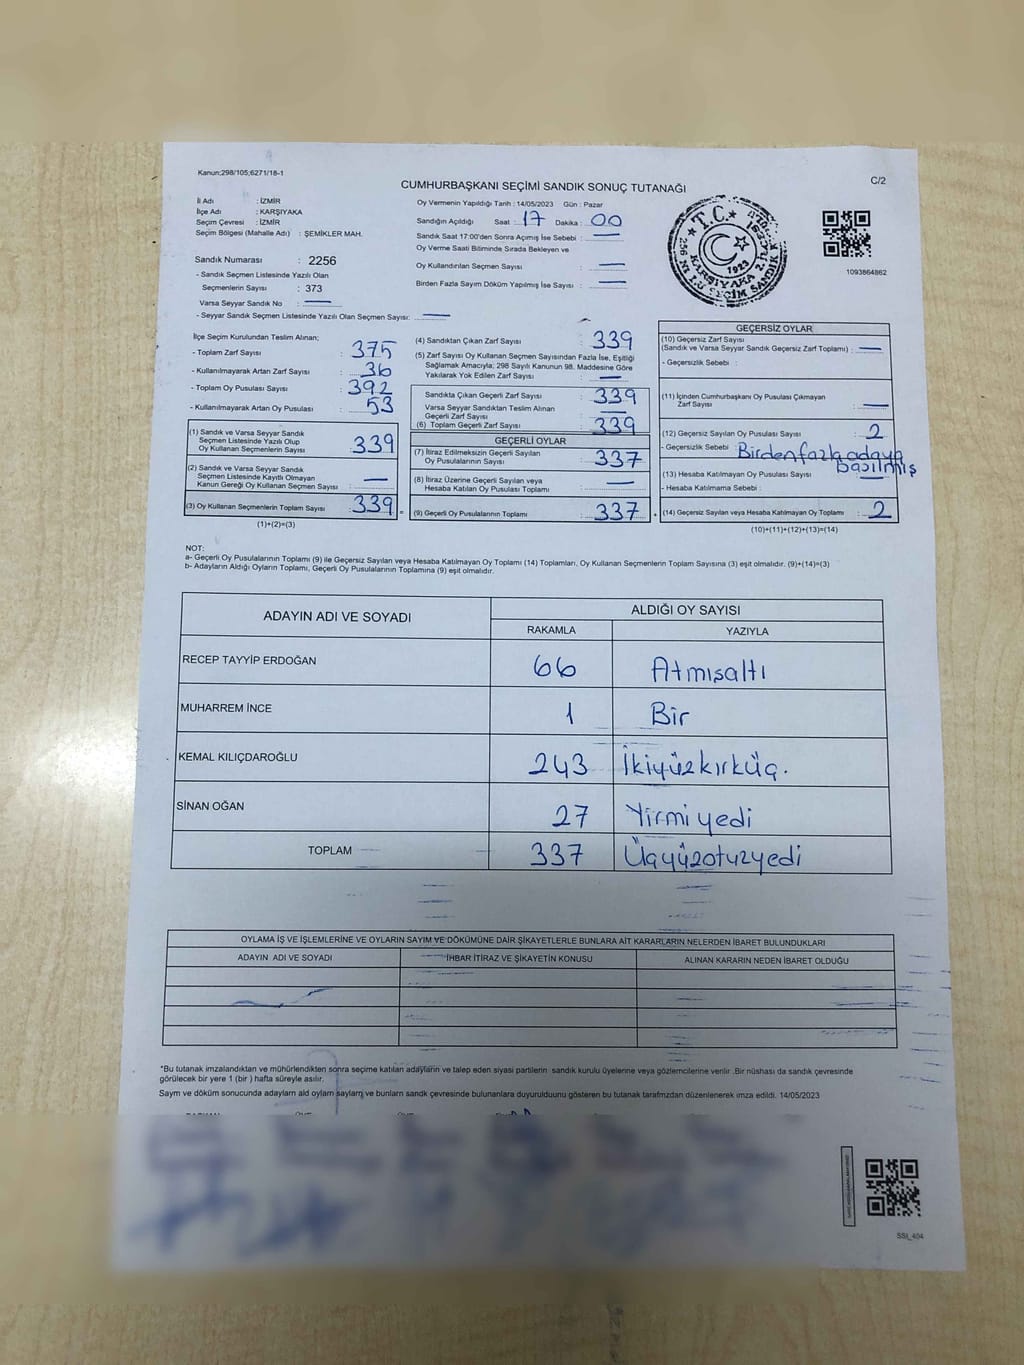 Kanun:298/105;6271/18-1
C/2
CUMHURBAŞKANI SEÇİMİ SANDIK SONUÇ TUTANAĞI
İl Adı : İZMİR
İlçe Adı : KARŞIYAKA
Seçim Çevresi : İZMİR
Seçim Bölgesi (Mahalle Adı) : ŞEMİKLER MAH.
Sandık Numarası : 2256
- Sandık Seçmen Listesinde Yazılı Olan
Seçmenlerin Sayısı : 373
Varsa Seyyar Sandık No :
- Seyyar Sandık Seçmen Listesinde Yazılı Olan Seçmen Sayısı:
Oy Vermenin Yapıldığı Tarih : 14/05/2023 Gün : Pazar
Sandığın Açıldığı Saat : 17 Dakika : 00
Sandık Saat 17:00'den Sonra Açımış İse Sebebi :
Oy Verme Saati Bitiminde Sırada Bekleyen ve
Oy Kullandırılan Seçmen Sayısı :
Birden Fazla Sayım Döküm Yapılmış İse Sayısı :
T.C.
KARŞIYAKA 2. İLÇESİ
2256 NO'LU SEÇİM SANDIK
1923
1093864862
İlçe Seçim Kurulundan Teslim Alınan;
- Toplam Zarf Sayısı : 375
- Kullanılmayarak Artan Zarf Sayısı : 36
- Toplam Oy Pusulası Sayısı : 392
- Kullanılmayarak Artan Oy Pusulası : 53
(1) Sandık ve Varsa Seyyar Sandık
Seçmen Listesinde Yazılı Olup
Oy Kullanan Seçmenlerin Sayısı : 339
(2) Sandık ve Varsa Seyyar Sandık
Seçmen Listesinde Kayıtlı Olmayan
Kanun Gereği Oy Kullanan Seçmen Sayısı :
(3) Oy Kullanan Seçmenlerin Toplam Sayısı : 339 =
(1)+(2)=(3)
(4) Sandıktan Çıkan Zarf Sayısı : 339
(5) Zarf Sayısı Oy Kullanan Seçmen Sayısından Fazla İse, Eşitliği
Sağlamak Amacıyla; 298 Sayılı Kanunun 98. Maddesine Göre
Yakılarak Yok Edilen Zarf Sayısı :
Sandıkta Çıkan Geçerli Zarf Sayısı : 339
Varsa Seyyar Sandıktan Teslim Alınan
Geçerli Zarf Sayısı :
(6) Toplam Geçerli Zarf Sayısı : 339
GEÇERLİ OYLAR
(7) İtiraz Edilmeksizin Geçerli Sayılan
Oy Pusulalarının Sayısı : 337
(8) İtiraz Üzerine Geçerli Sayılan veya
Hesaba Katılan Oy Pusulası Toplamı :
(9) Geçerli Oy Pusulalarının Toplamı : 337 +
GEÇERSİZ OYLAR
(10) Geçersiz Zarf Sayısı
(Sandık ve Varsa Seyyar Sandık Geçersiz Zarf Toplamı) :
- Geçersizlik Sebebi :
(11) İçinden Cumhurbaşkanı Oy Pusulası Çıkmayan
Zarf Sayısı :
(12) Geçersiz Sayılan Oy Pusulası Sayısı : 2
- Geçersizlik Sebebi : Birden fazla adaya
basılmış
(13) Hesaba Katılmayan Oy Pusulası Sayısı :
- Hesaba Katılmama Sebebi :
(14) Geçersiz Sayılan veya Hesaba Katılmayan Oy Toplamı : 2
(10)+(11)+(12)+(13)=(14)
NOT:
a- Geçerli Oy Pusulalarının Toplamı (9) ile Geçersiz Sayılan veya Hesaba Katılmayan Oy Toplamı (14) Toplamları, Oy Kullanan Seçmenlerin Toplam Sayısına (3) eşit olmalıdır. (9)+(14)=(3)
b- Adayların Aldığı Oyların Toplamı, Geçerli Oy Pusulalarının Toplamına (9) eşit olmalıdır.
ADAYIN ADI VE SOYADI
ALDIĞI OY SAYISI
RAKAMLA YAZIYLA
RECEP TAYYİP ERDOĞAN 66 Atmışaltı
MUHARREM İNCE 1 Bir
KEMAL KILIÇDAROĞLU 243 İkiyüzkırküç.
SİNAN OĞAN 27 Yirmi yedi
TOPLAM 337 Üçyüzotuzyedi
OYLAMA İŞ VE İŞLEMLERİNE VE OYLARIN SAYIM VE DÖKÜMÜNE DAİR ŞİKAYETLERLE BUNLARA AİT KARARLARIN NELERDEN İBARET BULUNDUKLARI
ADAYIN ADI VE SOYADI İHBAR İTİRAZ VE ŞİKAYETİN KONUSU ALINAN KARARIN NEDEN İBARET OLDUĞU
*Bu tutanak imzalandıktan ve mühürlendikten sonra seçime katılan adayların ve talep eden siyasi partilerin sandık kurulu üyelerine veya gözlemcilerine verilir .Bir nüshası da sandık çevresinde
görülecek bir yere 1 (bir ) hafta süreyle asılır.
Sayım ve döküm sonucunda adayların ald oyları sayların ve bunların sandk çevresinde bulunanlara duyurulduunu gösteren bu tutanak tarafmzdan düzenlenerek imza edildi. 14/05/2023
SSI_404